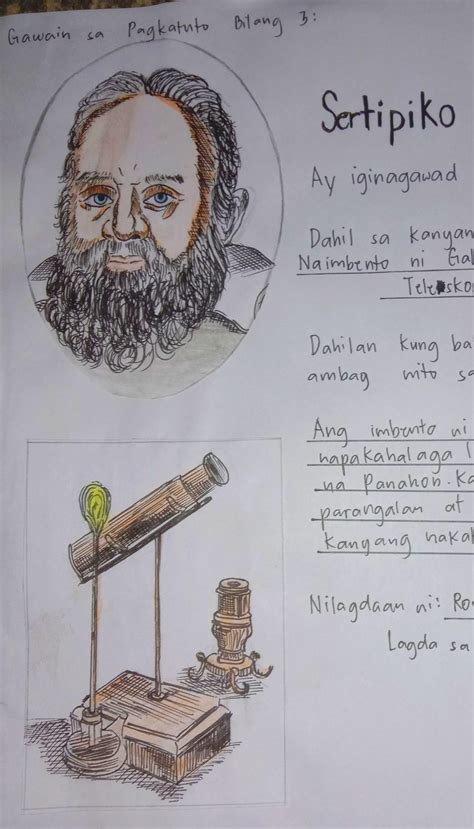 Gawain sa Pagkatuto Bilang 3:
Sertipiko
Ay iginagawad
Dahil sa kanyan
Naimbento ni Gal
Telesko
Dahilan kung ba
ambag nito sa
Ang imbento ni
napakahalaga
na Panahon. Ka
parangalan at
kanyang nakak
Nilagdaan ni: Ro
Lagda sa